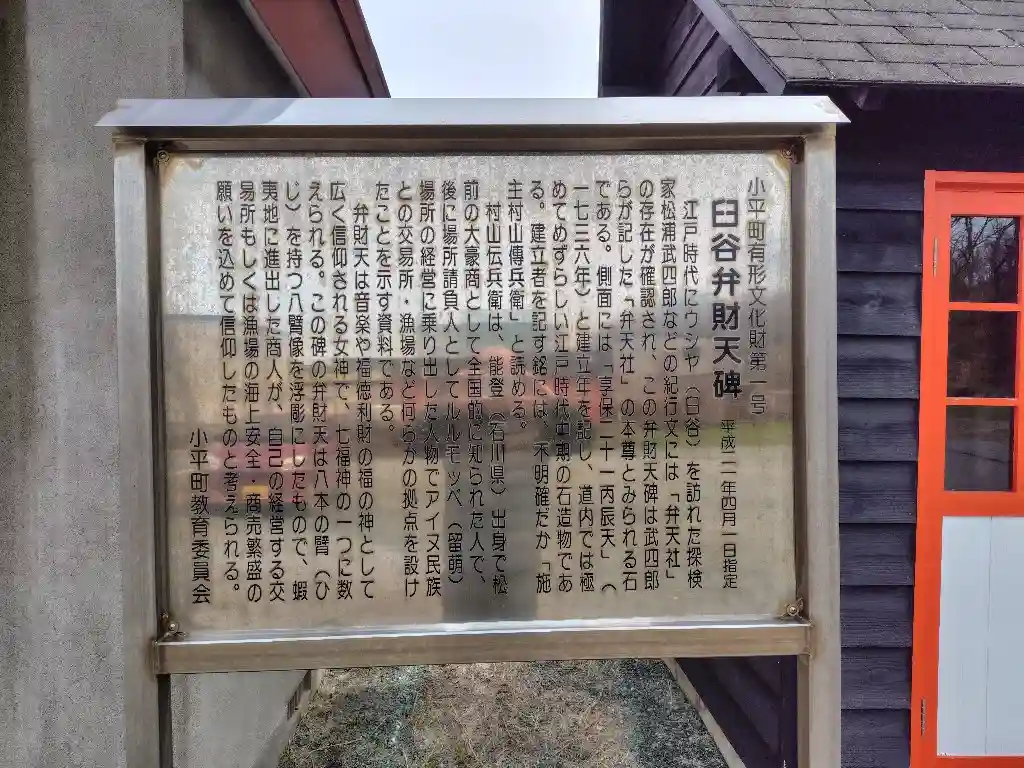 小平町有形文化財第一号
臼谷弁財天碑 平成二一年四月一日指定
江戸時代にウシヤ（臼谷）を訪れた探検
家松浦武四郎などの紀行文には「弁天社」
の存在が確認され、この弁財天碑は武四郎
らが記した「弁天社」の本尊とみられる石
である。側面には「享保二十一丙辰天」（
一七三六年）と建立年を記し、道内では極
めてめずらしい江戸時代中期の石造物であ
る。建立者を記す銘には、不明確だが「施
主村山傳兵衛」と読める。
村山伝兵衛は、能登（石川県）出身で松
前の大豪商として全国的に知られた人で、
後に場所請負人としてルルモッペ（留萌）
場所の経営に乗り出した人物でアイヌ民族
との交易所・漁場など何らかの拠点を設け
たことを示す資料である。
弁財天は音楽や福徳利財の福の神として
広く信仰される女神で、七福神の一つに数
えられる。この碑の弁財天は八本の臂（ひ
じ）を持つ八臂像を浮彫にしたもので、蝦
夷地に進出した商人が、自己の経営する交
易所もしくは漁場の海上安全、商売繁盛の
願いを込めて信仰したものと考えられる。
小平町教育委員会